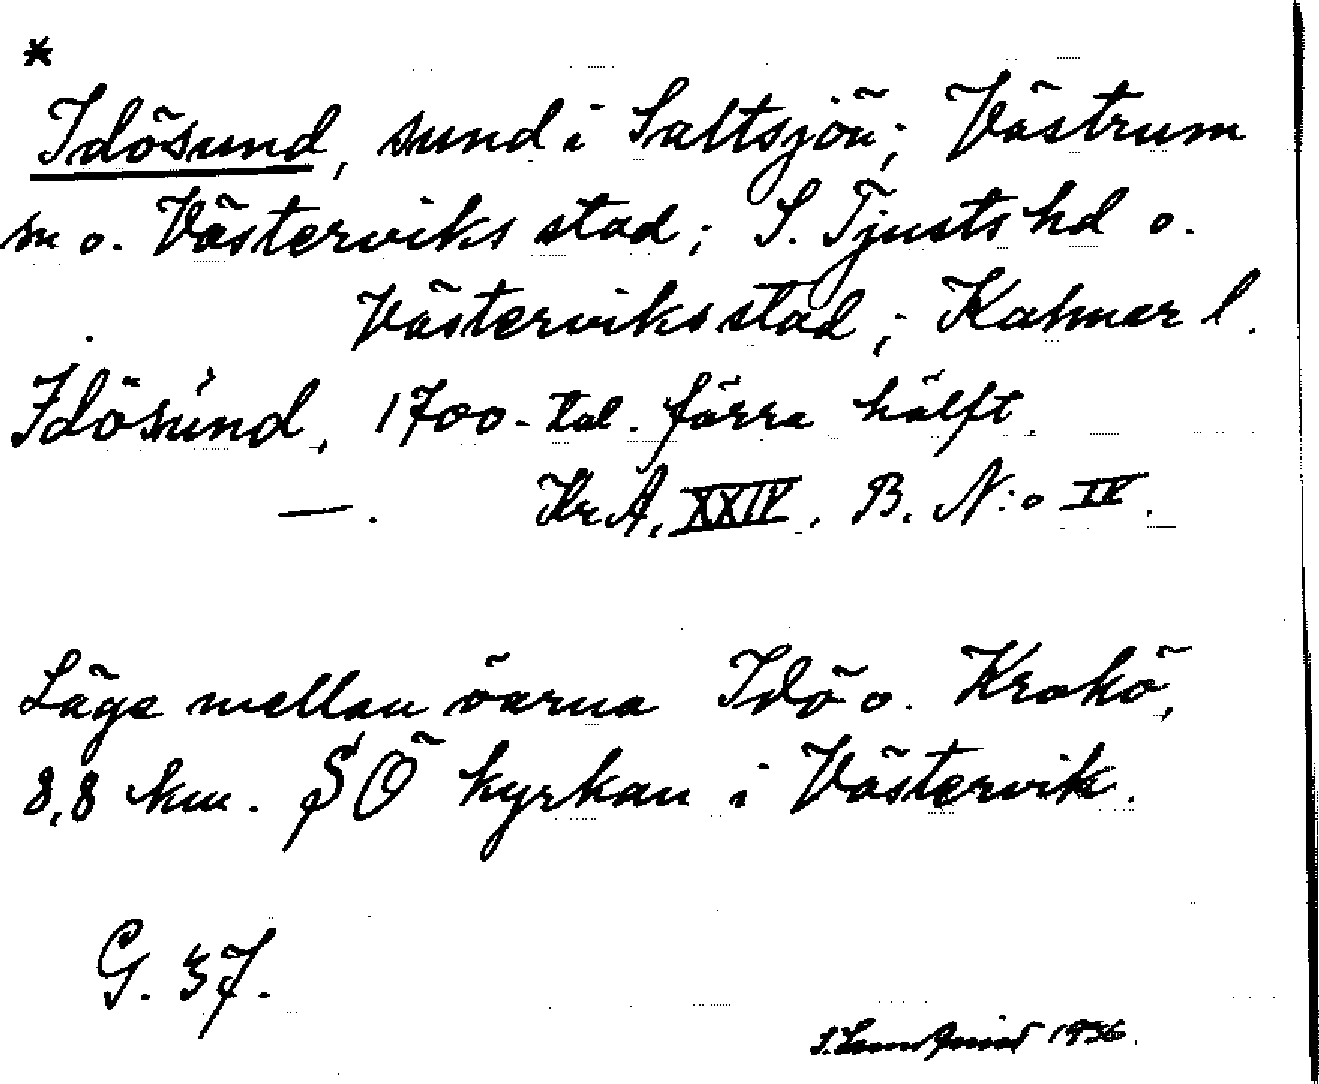 *
Idösund, sund i Saltsjön; Västrum
sn o. Västerviks stad; S. Tjusts hd o.
Västerviks stad; Kalmar l.
Idösund, 1700-tal. förra hälft.
—. Kr.A. XXIV. B. N:o IV.
Läge mellan öarna Idö o. Krokö,
8,8 km. SÖ kyrkan i Västervik.
G. 37.
1936.